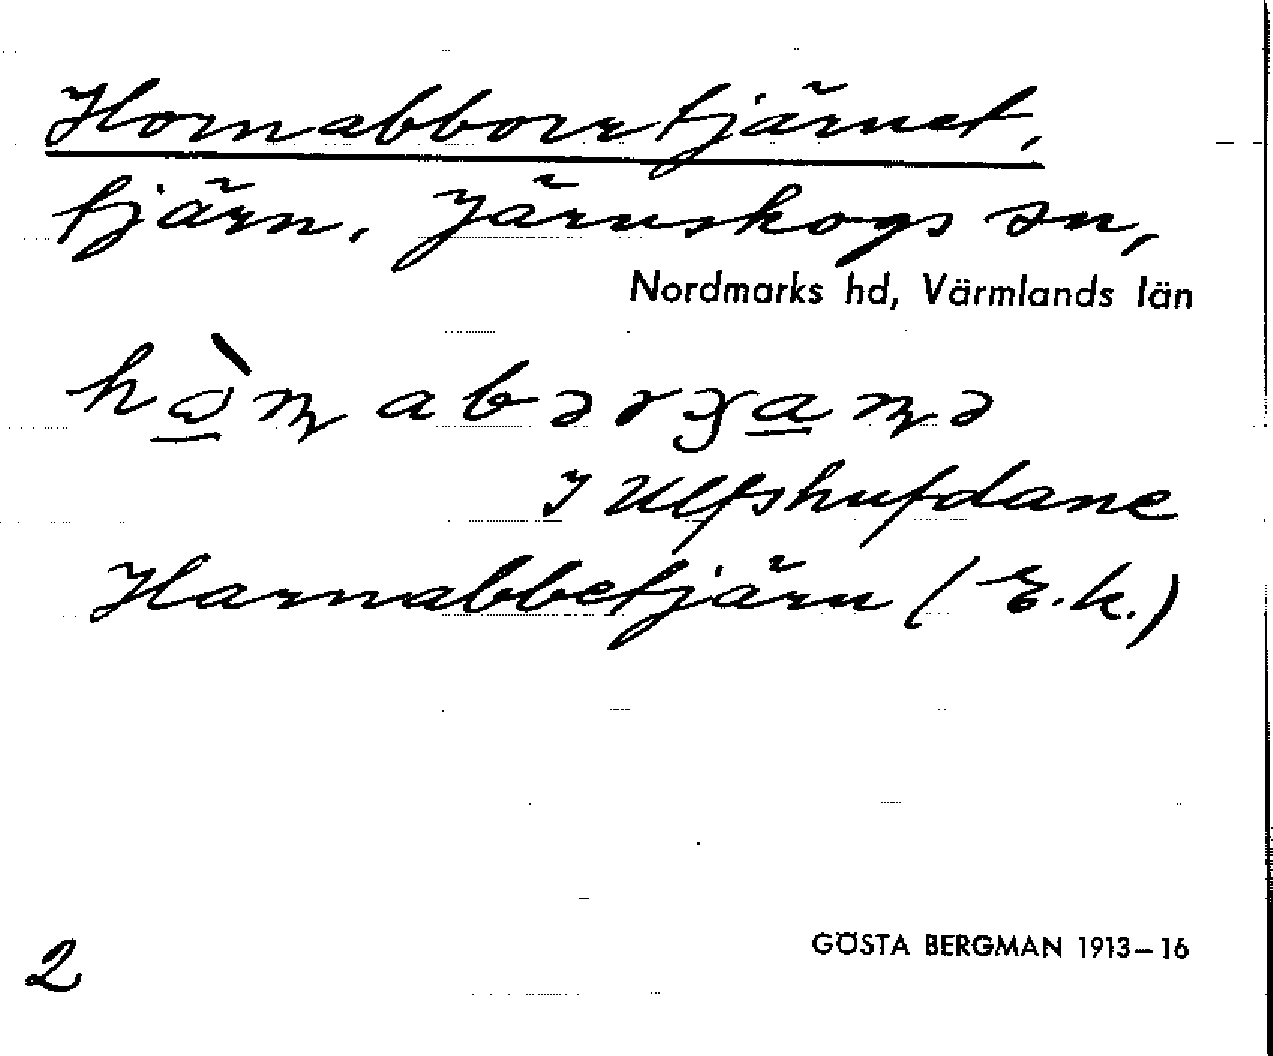 Hornabborrtjärnet,
tjärn. Järnskogs sn,
Nordmarks hd, Värmlands län
I Ulfshufdane
Harnabbetjärn (E.k.)
GÖSTA BERGMAN 1913–16
2